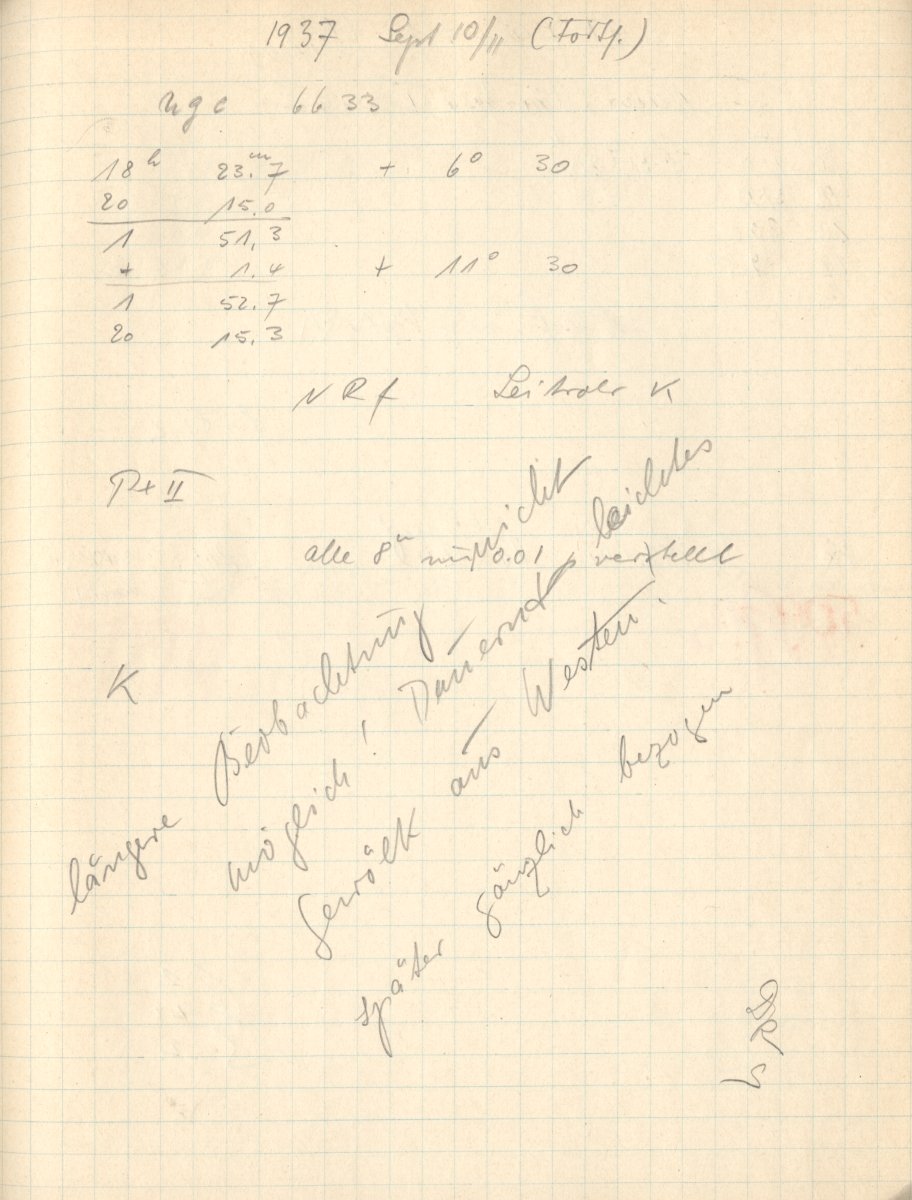 1937 Sept 10/11 (Forts.)
ngc 6633
18h 23.m7 + 6° 30
20 15.0
1 51,3
+ 1.4 + 11° 30
1 52.7
20 15.3
N R f Leitrohr K
P + II
alle 8m 0.01 verstellt
K
längere Beobachtung nicht
möglich! Dauernd leichtes
Gewölk aus Westen.
später gänzlich bezogen